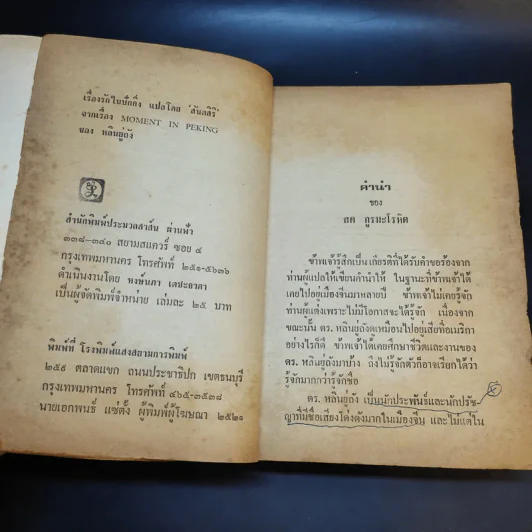 เรื่องรักในปักกิ่ง แปลโดย 'สันตสิริ'
จากเรื่อง MOMENT IN PEKING
ของ หลินยู่ถัง
สำนักพิมพ์ประมวลสาส์น ผ่านฟ้า
๓๓๘-๓๔๐ สยามสแควร์ ซอย ๔
กรุงเทพมหานคร โทรศัพท์ ๒๕๑-๕๖๓๖
ดำเนินงานโดย หงษ์นภา เตชะธาดา
เป็นผู้จัดพิมพ์จำหน่าย เล่มละ ๒๕ บาท
พิมพ์ที่ โรงพิมพ์แสงสลามการพิมพ์
๒๕๑ ตลาดแขก ถนนประชาธิปก เขตธนบุรี
กรุงเทพมหานคร โทรศัพท์ ๔๖๕-๓๕๓๘
นายเอกพนธ์ แซ่ตั้ง ผู้พิมพ์ผู้โฆษณา ๒๕๒๑
คำนำ
ของ
สด กูรมะโรหิต
ข้าพเจ้ารู้สึกเป็นเกียรติที่ได้รับคำขอร้องจาก
ท่านผู้แปลให้เขียนคำนำให้ ในฐานะที่ข้าพเจ้าได้
เคยไปอยู่เมืองจีนมาหลายปี ข้าพเจ้าไม่เคยรู้จัก
ท่านผู้แต่งเพราะไม่มีโอกาสจะได้รู้จัก เนื่องจาก
ขณะนั้น ดร. หลินยู่ถังดูเหมือนไปอยู่เสียที่อเมริกา
อย่างไรก็ดี ข้าพเจ้าได้เคยศึกษาชีวิตและงานของ
ดร. หลินยู่ถังมาบ้าง ถึงไม่รู้จักตัวก็อาจเรียกได้ว่า
รู้จักมากกว่ารู้จักชื่อ
ดร. หลินยู่ถัง เป็นนักประพันธ์และนักปรัช-
ญาที่มีชื่อเสียงโด่งดังมากในเมืองจีน และไม่แต่ใน